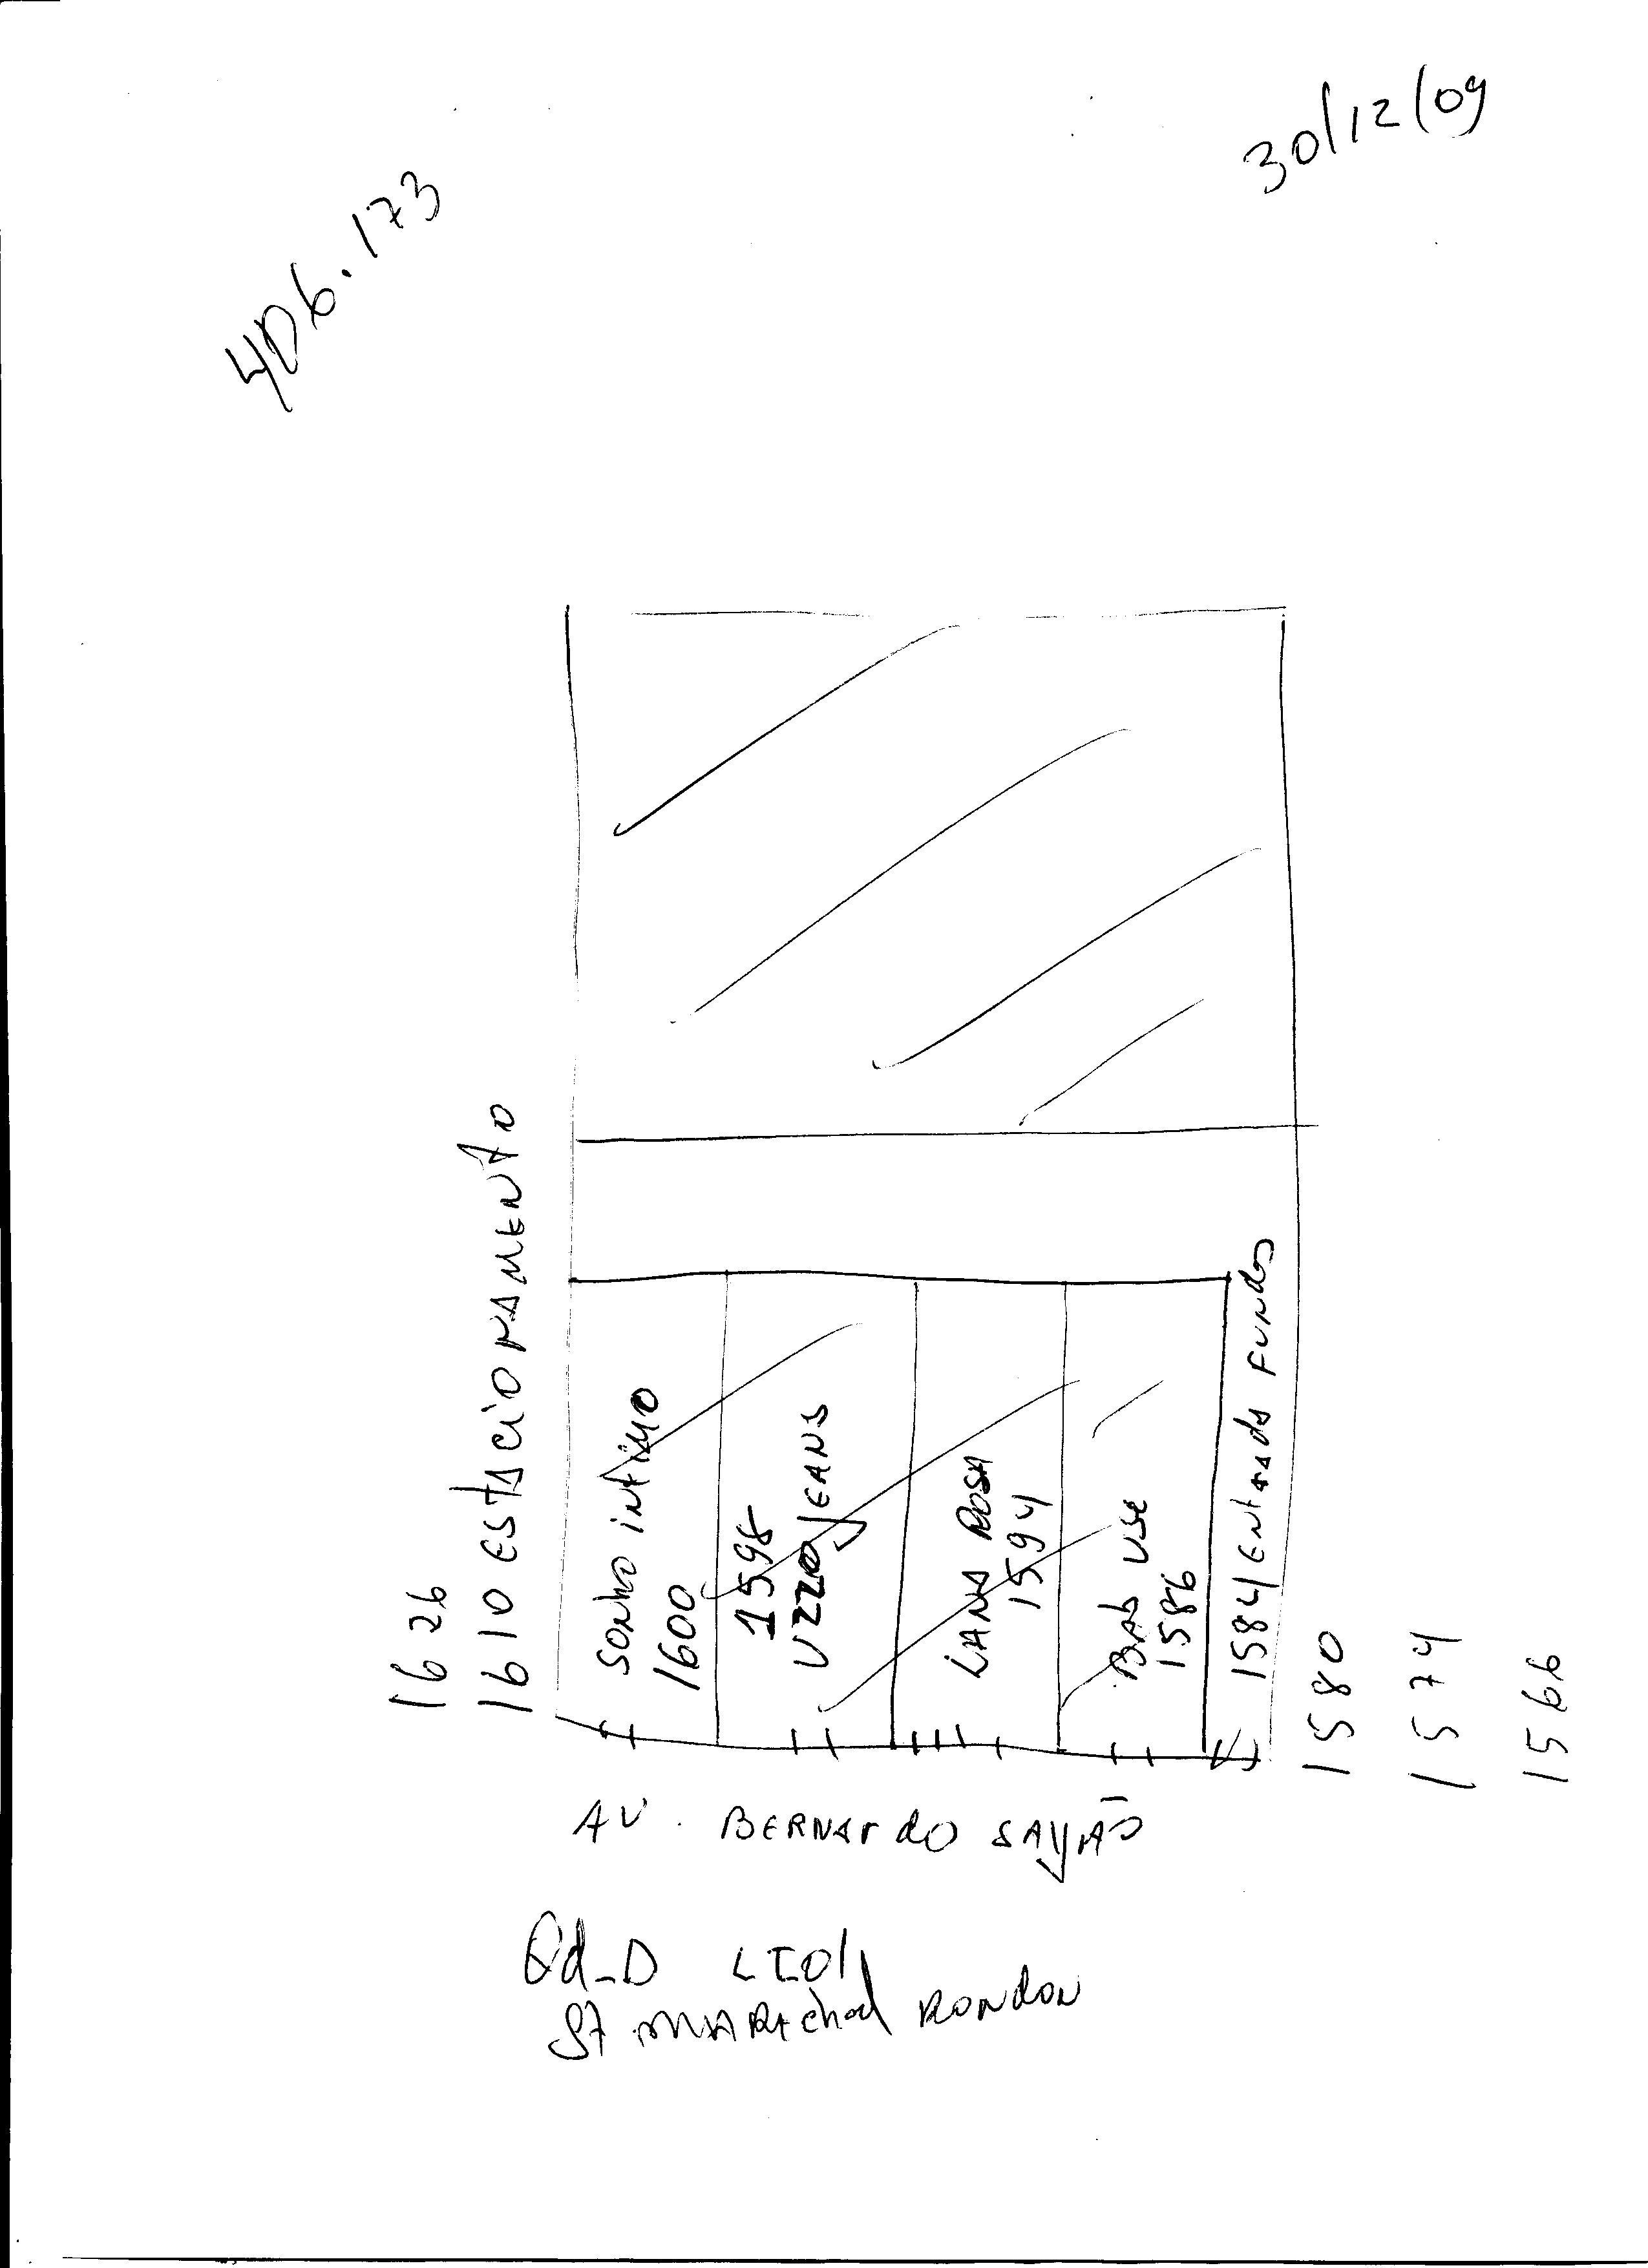 30/12/09
406.173
1626
1610 ESTACIONAMENTO
SONHO INTIMO
1600
1598
UZZO JEANS
LANA ROSA
1594
BAB USE
1586
1584 ENTRADA FUNDOS
1580
1574
1566
AV. BERNARDO SAYÃO
Qd_D LT01
ST MARECHAL RONDON